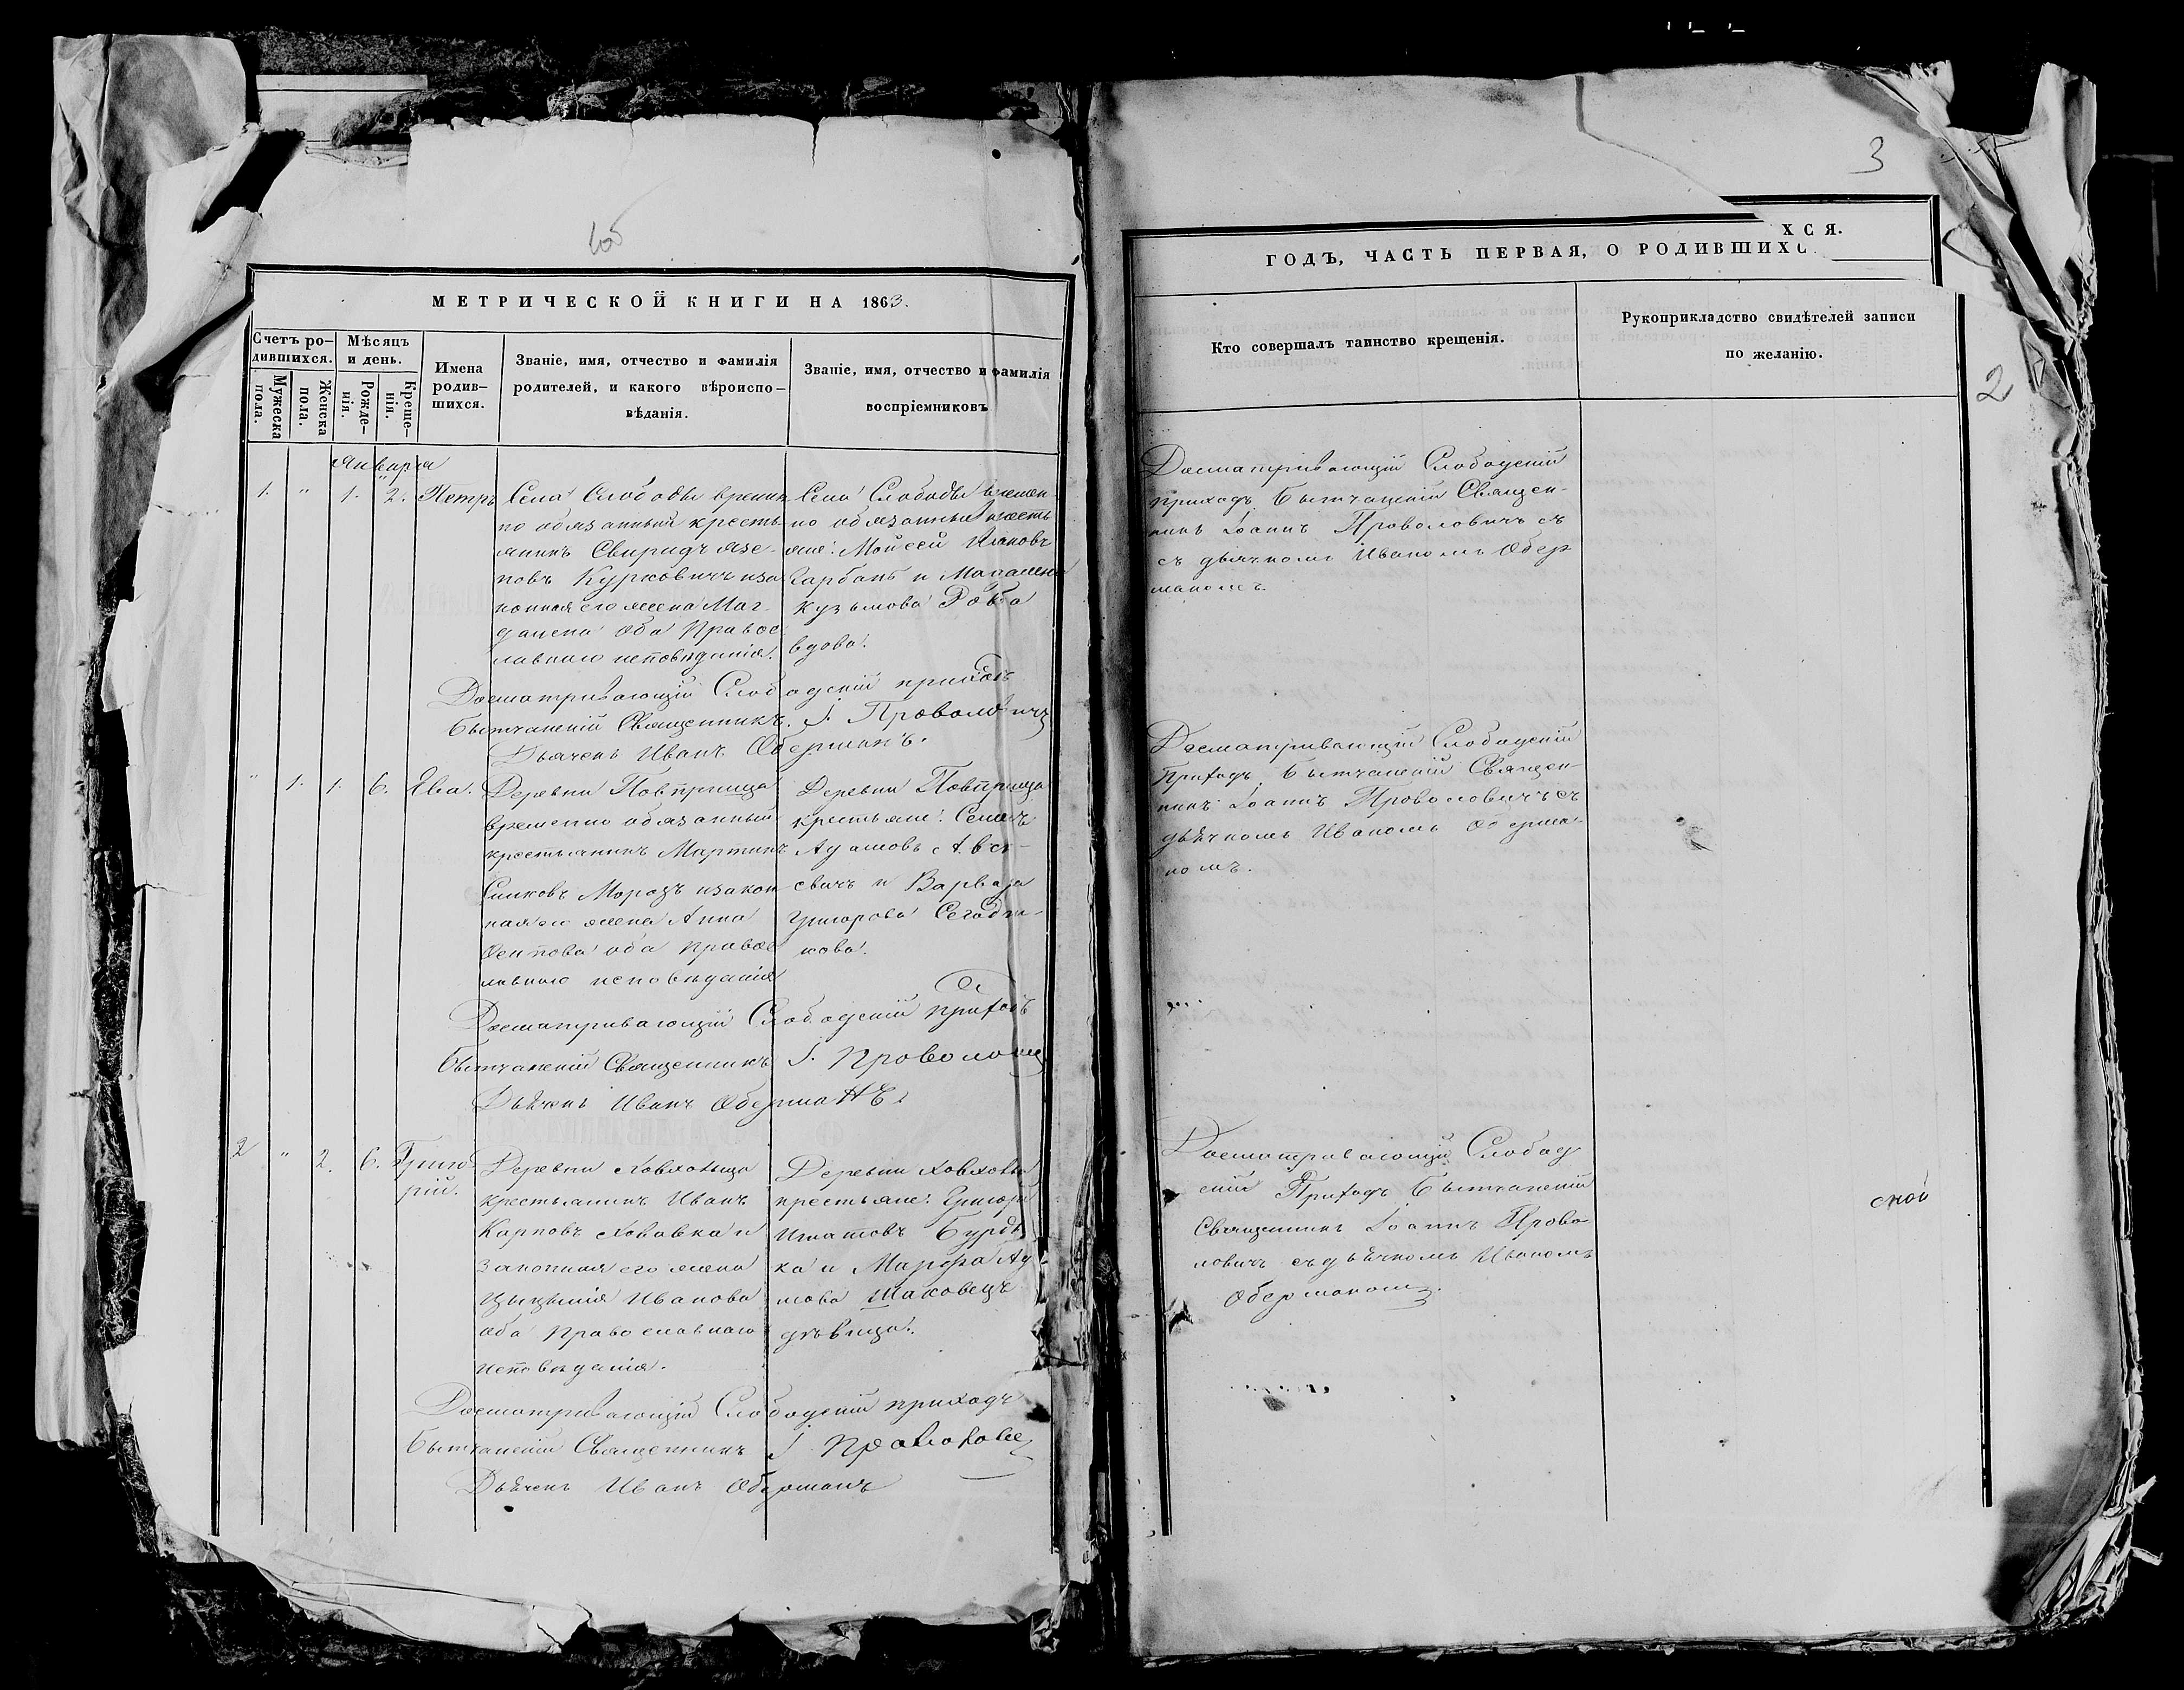 МЕТРИЧЕСКОЙ КНИГИ НА 1863.
Счетъ ро-
дившихся.
Мужеска
пола.
Женска
пола.
Мѣсяцъ
и день.
Рожде-
нія.
Креще-
нія.
Имена
родив-
шихся.
Званіе, имя, отчество и фамилія
родителей, и какого вѣроиспо-
вѣданія.
Званіе, имя, отчество и фамилія
воспріемниковъ
Января
1. " 1. 2. Петръ
Села Слободы времен
но обязанный кресть
янинъ Свиридъ
новъ Курковичъ иза
конная его жена Маг
далена оба Правос
лавнаго исповѣданія.
Села Слободы времен-
но обязанные кресть
яне: Мойсей Ивановъ
Гарбанъ и Магалена
Кузьмова
вдова.
Досматривающій Слободскій приходъ
Бытчанскій Священникъ І. Проволовичъ
Дьячекъ Иванъ Оберманъ.
" 1. 1. 6. Ева.
Деревни
временно обязанный
крестьянинъ Мартинъ
Морозъ изакон
ная его жена Анна
Осипова оба правос
лавнаго исповѣданія
Деревни
крестьяне: Семенъ
Адамовъ
и Варвара
Григорова
кова.
Досматривающій Слободскій приходъ
Бытчанскій Священникъ І. Проволовичъ
Дьячекъ Иванъ Оберманъ
2 " 2. 6. Григо-
рій.
Деревни
крестьянинъ Иванъ
Карповъ и
законная его жена
Иванова
оба православнаго
исповѣданія.
Деревни
крестьяне: Григорій
Игнатовъ
ка и Марѳа Ада
мова Шаковецъ
дѣвица.
Досматривающій Слободскій приходъ
Бытчанскій Священникъ І Проволовичъ
Дьячекъ Иванъ Оберманъ
3
ХСЯ.
ГОДЪ, ЧАСТЬ ПЕРВАЯ, О РОДИВШИХС
Кто совершалъ таинство крещенія.
Рукоприкладство свидѣтелей записи
по желанію.
2
Досматривающій Слободскій
приходъ Бытчанскій Священ-
никъ Іоаннъ Проволовичъ съ
съ дьячкомъ Иваномъ Обер
маномъ.
Досматривающій Слободскій
Приходъ Бытчанскій Священ-
никъ Іоаннъ Проволовичъ съ
дьячкомъ Иваномъ Оберма-
номъ.
Досматривающій Слобод
скій Приходъ Бытчанскій
Священникъ Іоаннъ Прово
ловичъ съ дьячкомъ Иваномъ
Оберманомъ.
ской